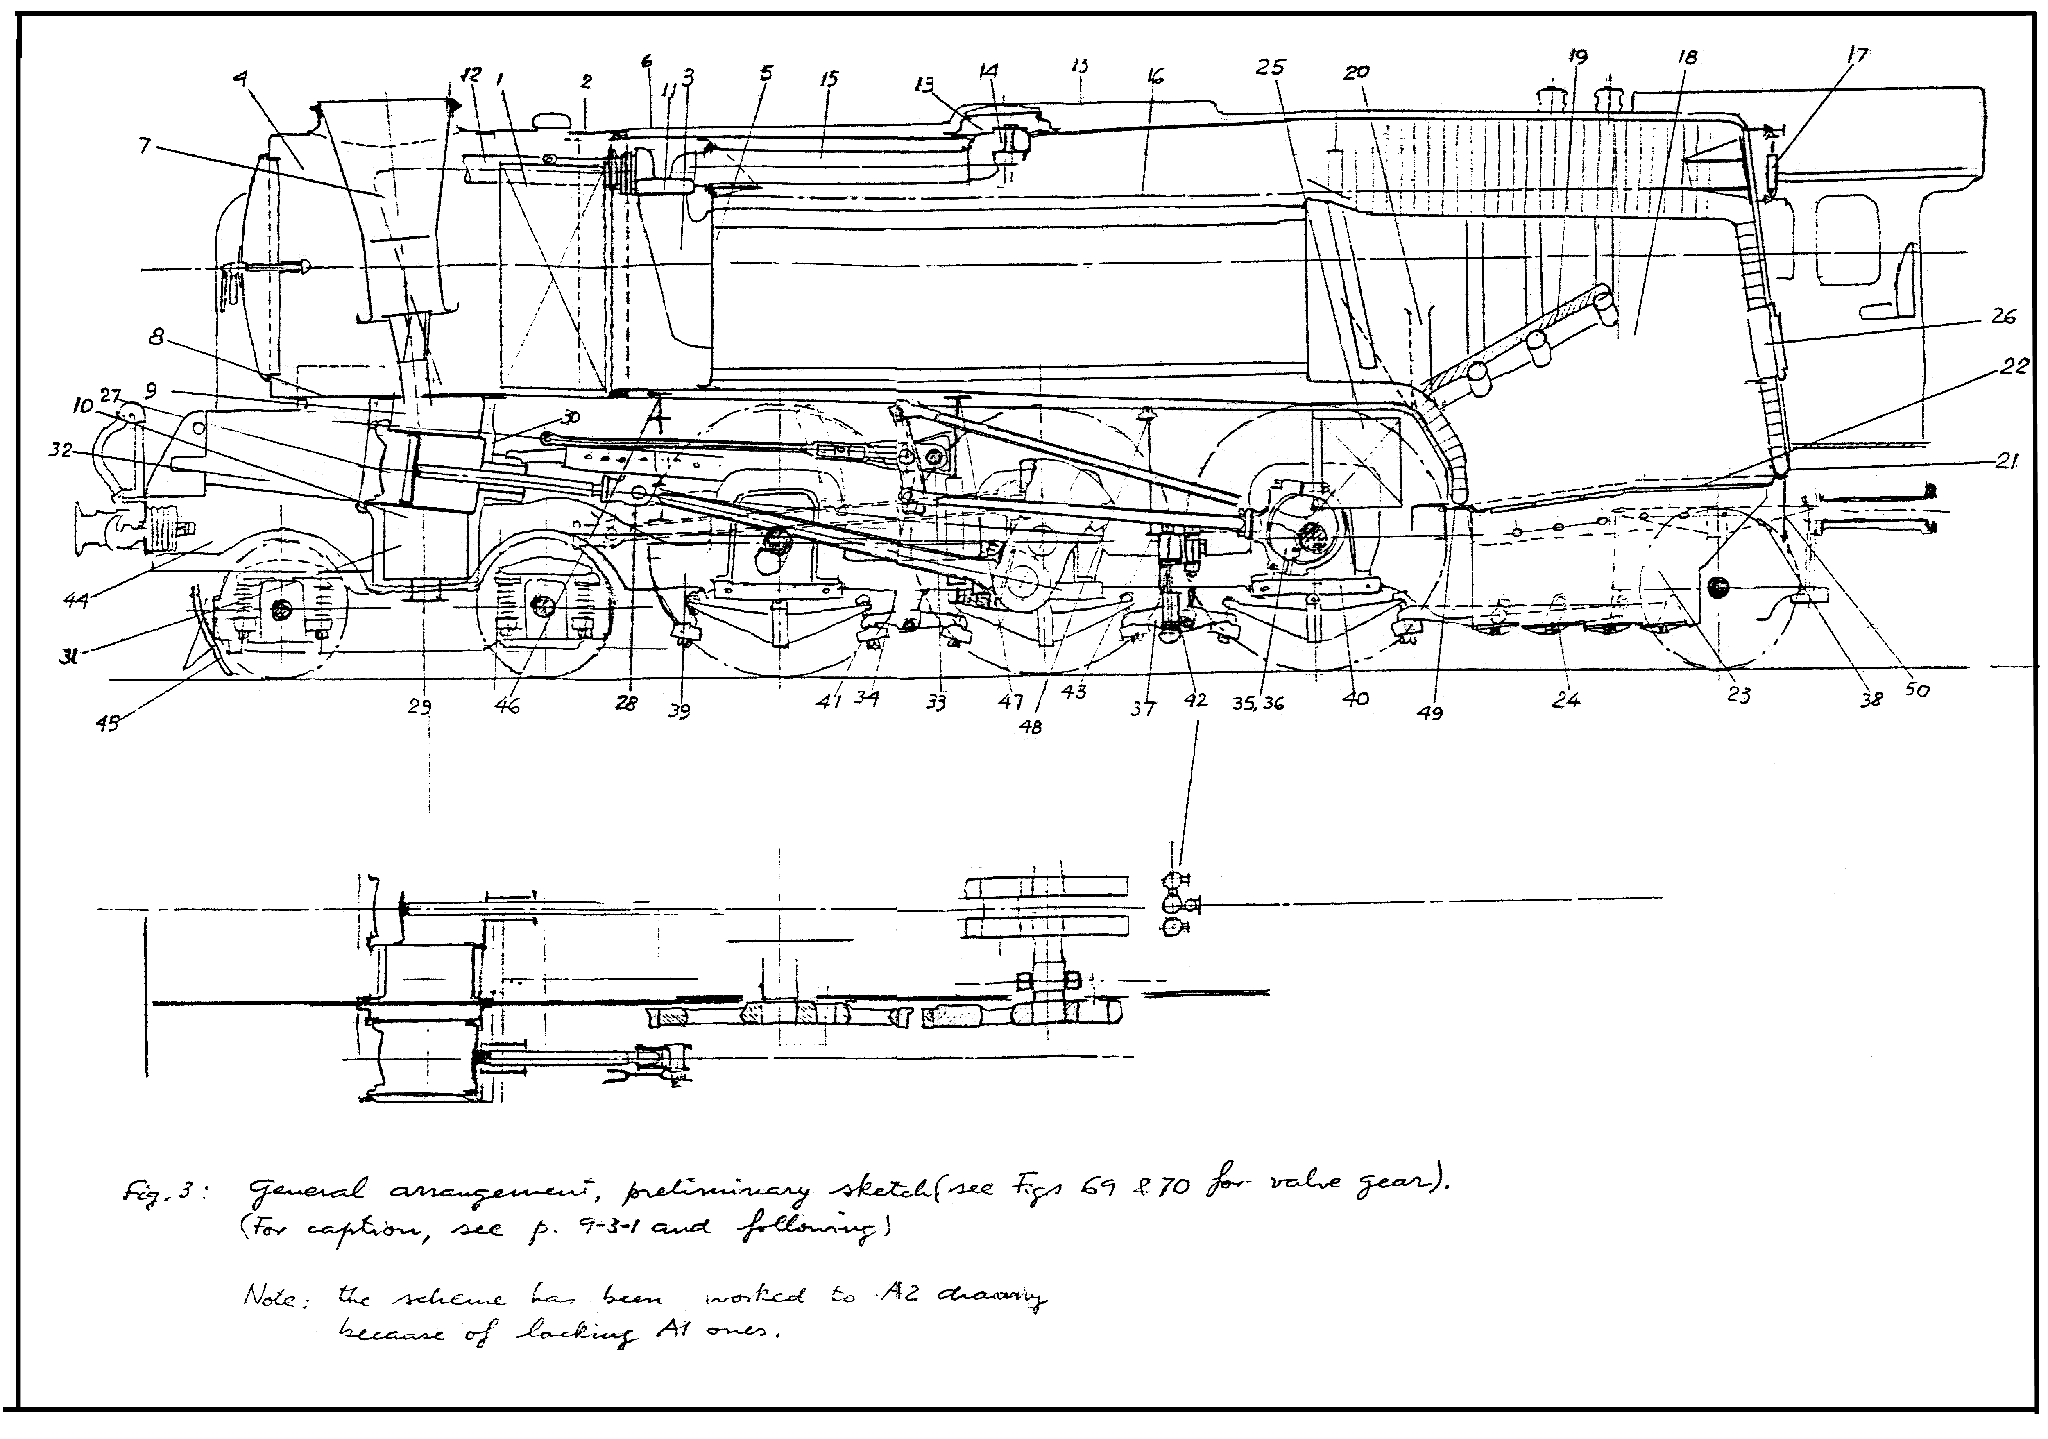 4 7 12 1 2 6 11 3 5 15 13 14 15 16 25 20 19 18 17
8
9
27
10
32
30
26
22
21
44
31
45
29 46 28 39 41 34 33 47 48 43 37 42 35,36 40 49 24 23 38 50
Fig. 3: General arrangement, preliminary sketch (see Figs 69 & 70 for valve gear).
(For caption, see p. 9-3-1 and following)
Note: the scheme has been worked to A2 drawing
because of lacking A1 ones.